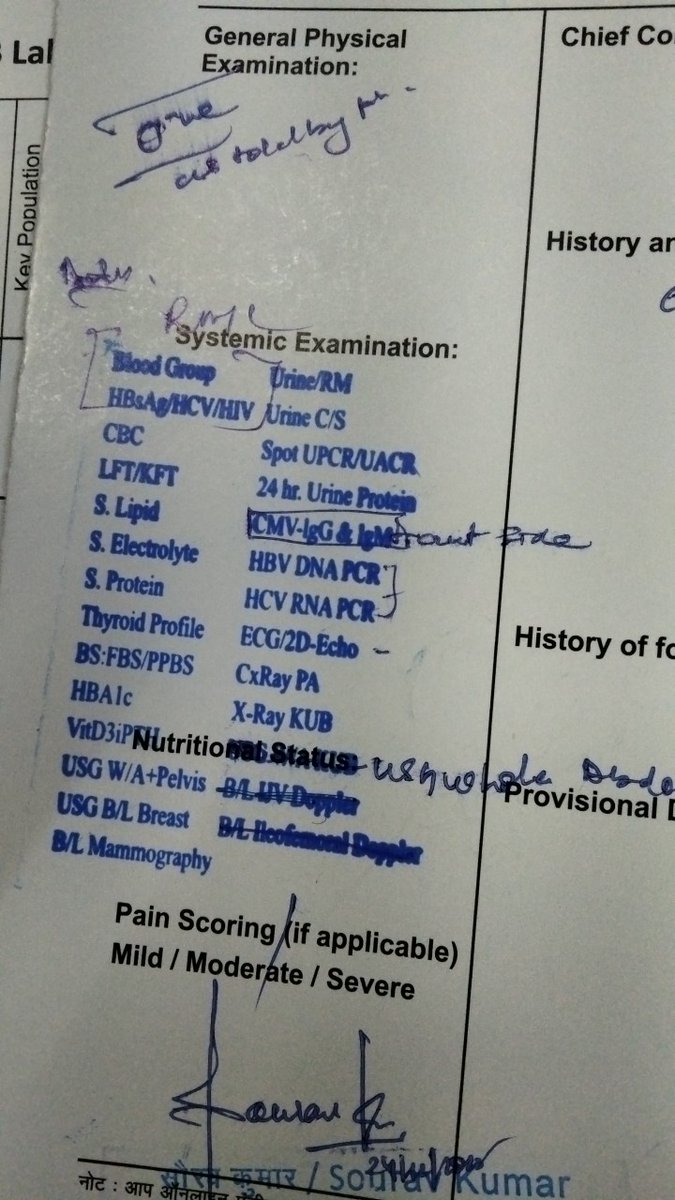 General Physical
Examination:
Chief Co
Key Population
History an
Systemic Examination:
Blood Group
HBsAg/HCV/HIV
CBC
LFT/KFT
S. Lipid
S. Electrolyte
S. Protein
Thyroid Profile
BS:FBS/PPBS
HBA1c
VitD3iPTH
USG W/A+Pelvis
USG B/L Breast
B/L Mammography
Urine/RM
Urine C/S
Spot UPCR/UACR
24 hr. Urine Protein
CMV-IgG & IgM
HBV DNA PCR
HCV RNA PCR
ECG/2D-Echo
CxRay PA
X-Ray KUB
B/L UV Doppler
B/L Ileofemoral Doppler
History of fo
Nutritional Status:
USG whole
Provisional D
Pain Scoring (if applicable)
Mild / Moderate / Severe
सौरव कुमार / Sourav Kumar
नोट : आप ऑनलाइन